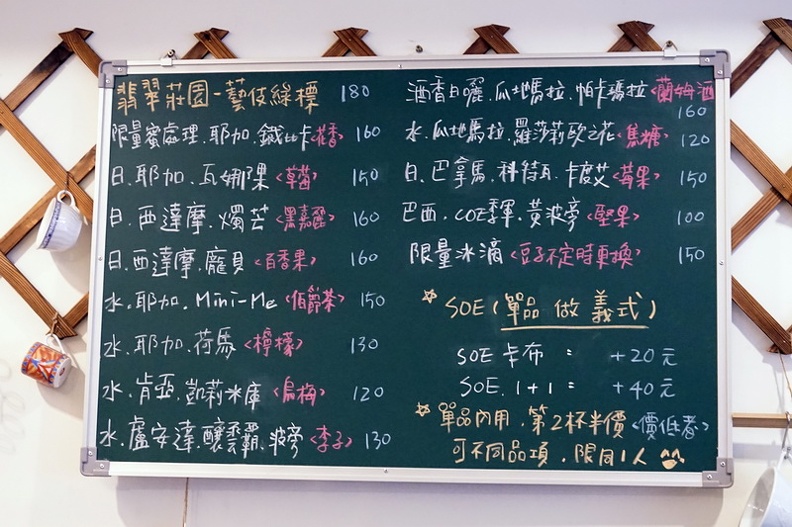 翡翠莊園-藝伎綠標 180
限量蜜處理.耶加.鐵比卡<花香> 160
日.耶加.瓦娜隈<草莓> 150
日.西達摩.燭芒<黑嘉麗> 160
日.西達摩.龐貝<百香果> 160
水.耶加.Mini-Me<伯爵茶> 150
水.耶加.荷馬<檸檬> 130
水.肯亞.凱莉米庫<烏梅> 120
水.盧安達.釀雲霸.波旁<李子> 130
酒香日曬.瓜地馬拉.帕卡瑪拉<蘭姆酒
160
水.瓜地馬拉.羅莎莉歐之花<焦糖> 120
日.巴拿馬.科特瓦.卡度艾<莓果> 150
巴西.COE季軍.黃波旁<堅果> 100
限量冰滴<豆子不定時更換> 150
☆ SOE(單品 做 義式)
SOE 卡布 : +20元
SOE. 1+1 : +40元
☆ 單品內用.第2杯半價<價低者>
可不同品項.限同1人